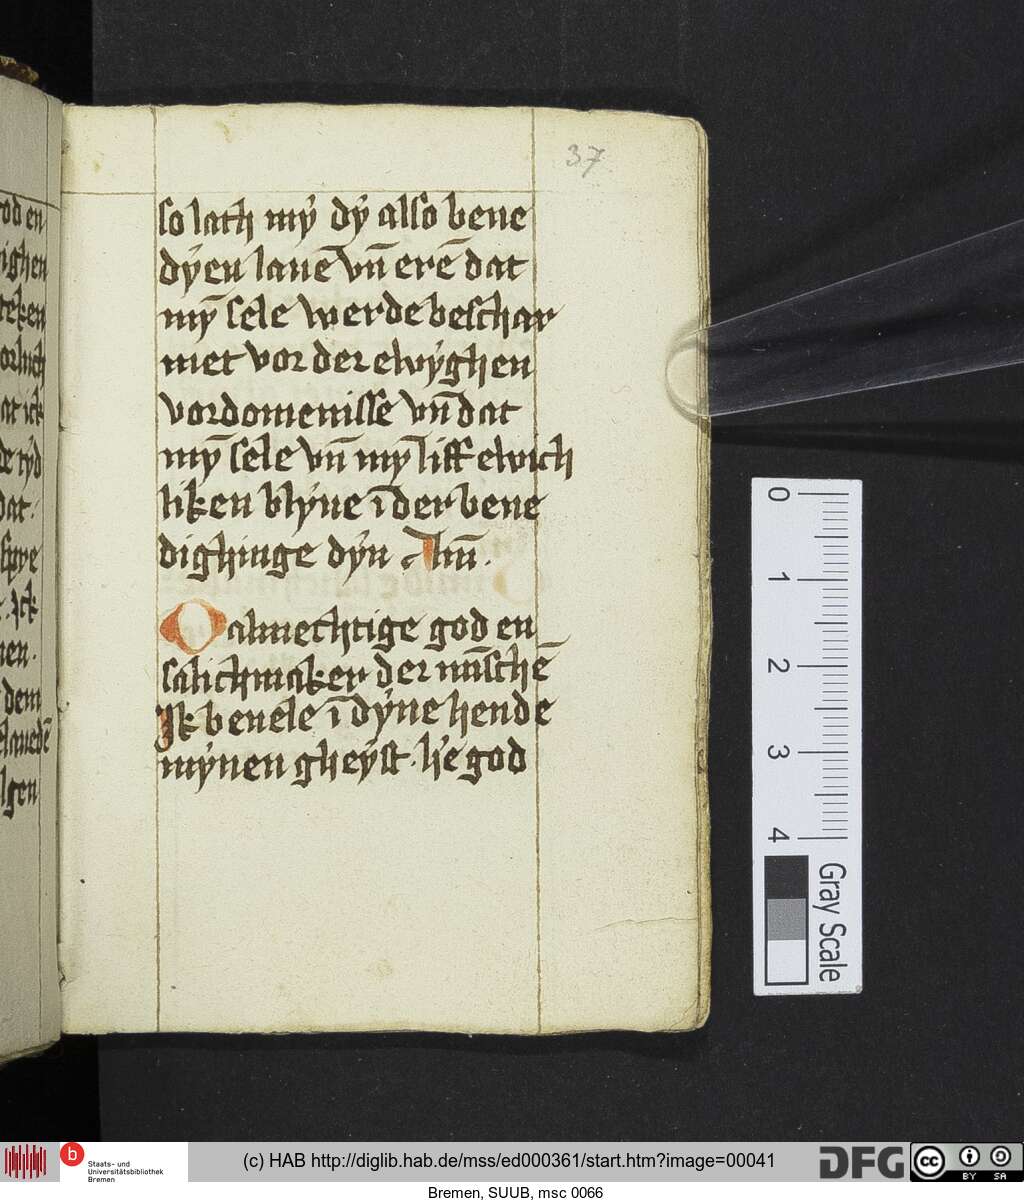 37
so lath mÿ dÿ also bene
dÿen lauē vn̄ erē dat
mȳ sele werde beschar
met vor der ewÿghen
vordomenisse vn̄ dat
mȳ sele vn̄ mȳ liff ewich
liken blÿue ī der bene
dighinge dÿn. Am̄.
O almechtige god en
salichmaker der mn̄schē
Jk beuele ī dÿne hende
mÿnen gheÿst. h'e god
od en
ighen
teken
at ick
de tÿd
dat.
Jck
dem
0
1
2
3
4
Gray Scale
b
Staats- und
Universitätsbibliothek
Bremen
(c) HAB http://diglib.hab.de/mss/ed000361/start.htm?image=00041
DFG
cc
BY SA
Bremen, SUUB, msc 0066